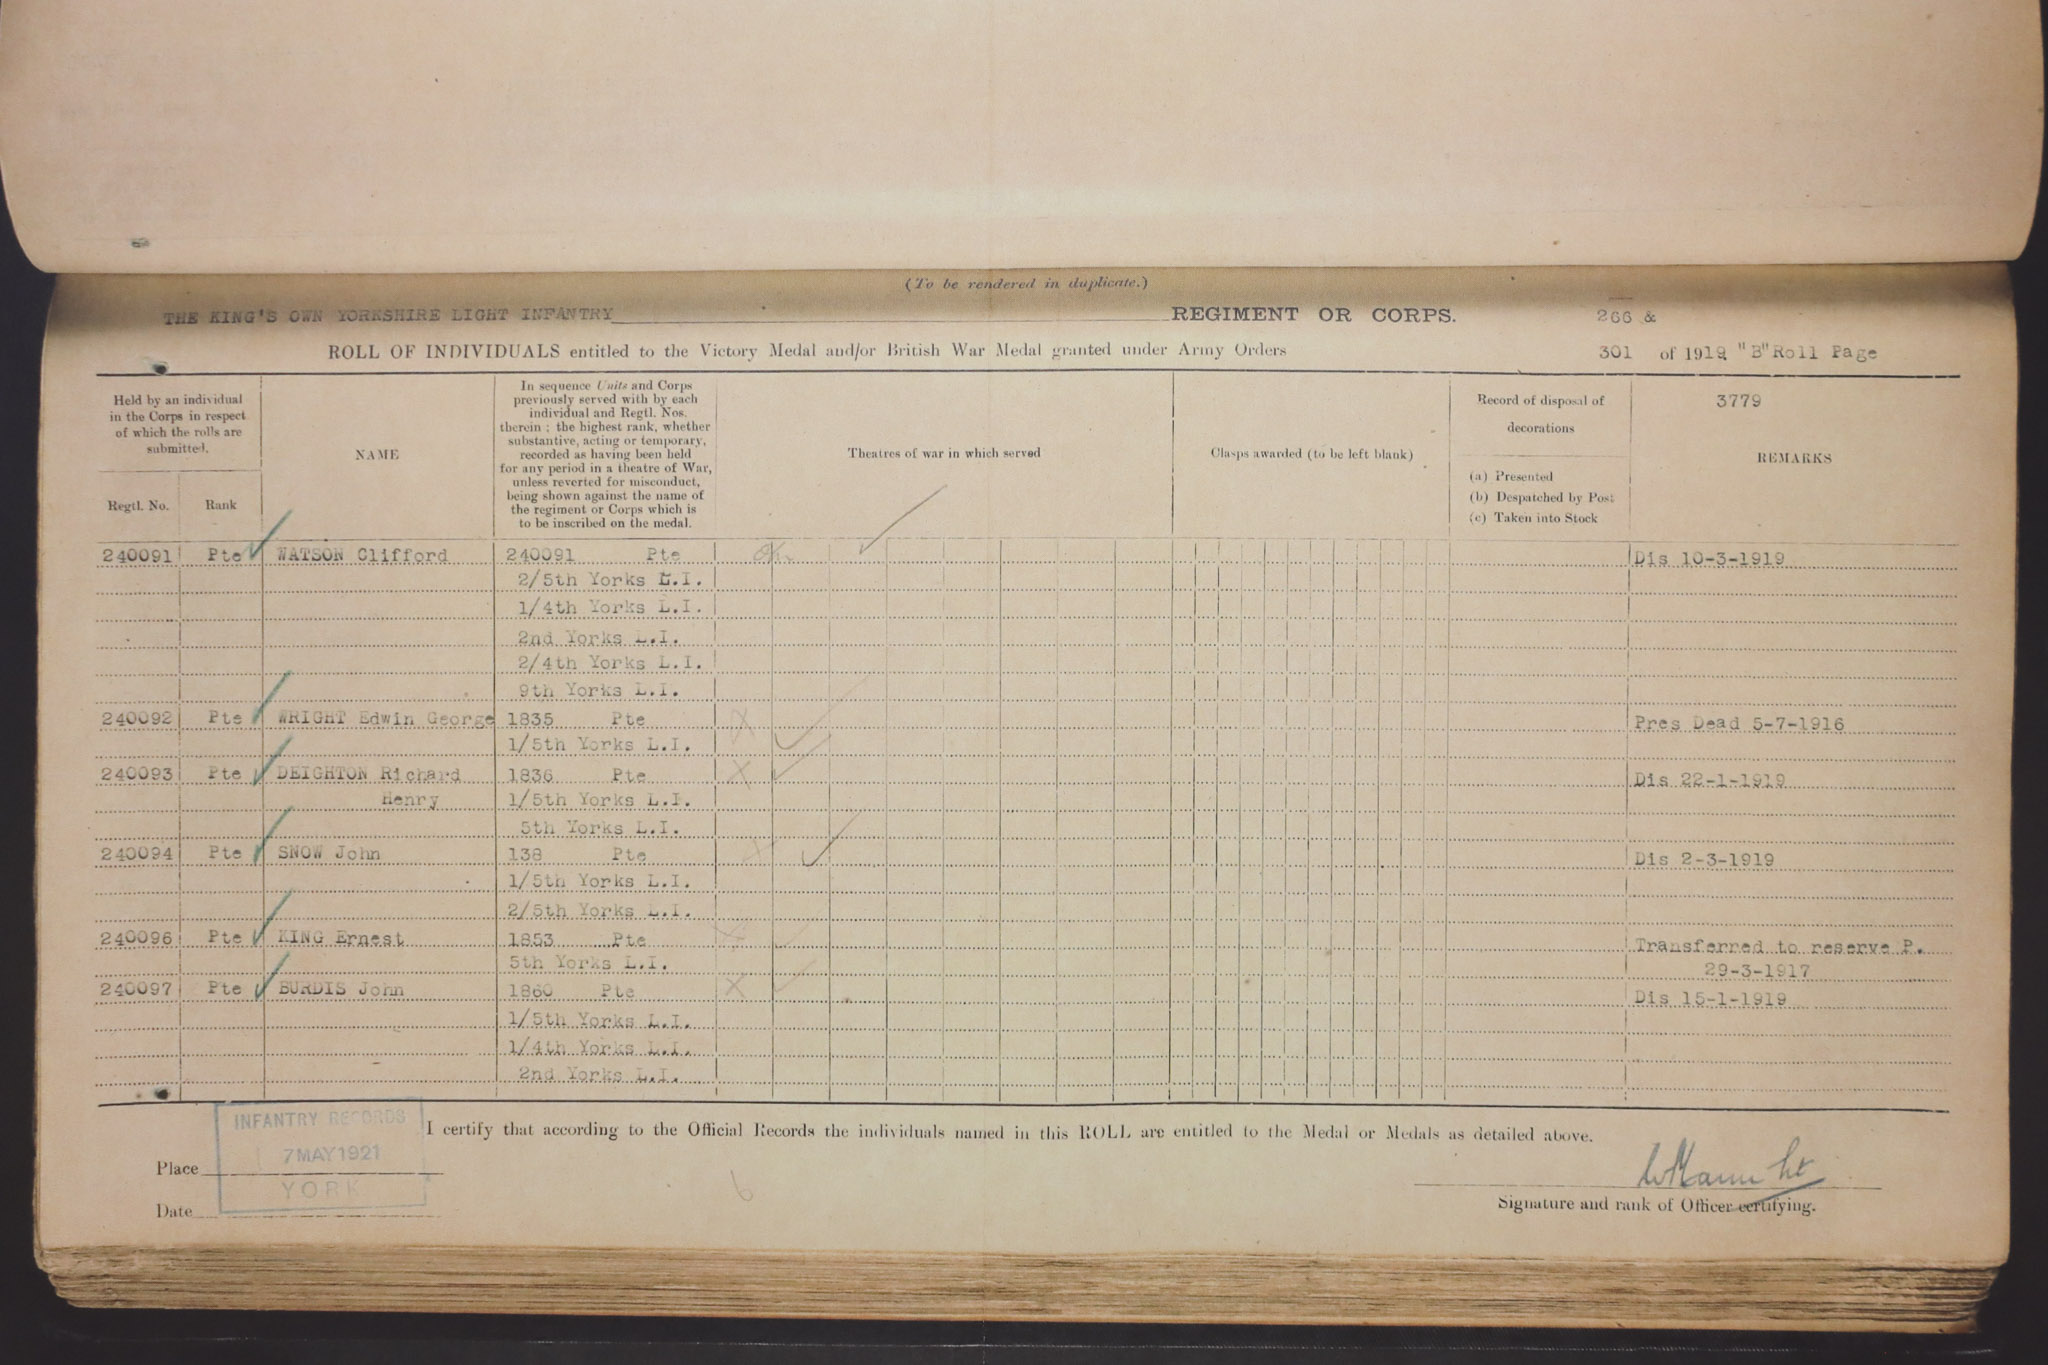 (To be rendered in duplicate.)
THE KING'S OWN YORKSHIRE LIGHT INFANTRY REGIMENT OR CORPS. 266 &
ROLL OF INDIVIDUALS entitled to the Victory Medal and/or British War Medal granted under Army Orders 301 of 1919 "B"Roll Page
3779
Held by an individual
in the Corps in respect
of which the rolls are
submitted.
Regtl. No. Rank
NAME
In sequence Units and Corps
previously served with by each
individual and Regtl. Nos.
therein ; the highest rank, whether
substantive, acting or temporary,
recorded as having been held
for any period in a theatre of War,
unless reverted for misconduct,
being shown against the name of
the regiment or Corps which is
to be inscribed on the medal.
Theatres of war in which served
Clasps awarded (to be left blank)
Record of disposal of
decorations
(a) Presented
(b) Despatched by Post
(c) Taken into Stock
REMARKS
240091 Pte WATSON Clifford 240091 Pte Dis 10-3-1919
2/5th Yorks L.I.
1/4th Yorks L.I.
2nd Yorks L.I.
2/4th Yorks L.I.
9th Yorks L.I.
240092 Pte WRIGHT Edwin George 1835 Pte Pres Dead 5-7-1916
1/5th Yorks L.I.
240093 Pte DEIGHTON Richard 1836 Pte Dis 22-1-1919
Henry 1/5th Yorks L.I.
5th Yorks L.I.
240094 Pte SNOW John 138 Pte Dis 2-3-1919
1/5th Yorks L.I.
2/5th Yorks L.I.
240096 Pte KING Ernest 1853 Pte Transferred to reserve P.
5th Yorks L.I. 29-3-1917
240097 Pte BURDIS John 1860 Pte Dis 15-1-1919
1/5th Yorks L.I.
1/4th Yorks L.I.
2nd Yorks L.I.
INFANTRY RECORDS
7 MAY 1921
YORK
I certify that according to the Official Records the individuals named in this ROLL are entitled to the Medal or Medals as detailed above.
Place
Date
6
Signature and rank of Officer certifying.